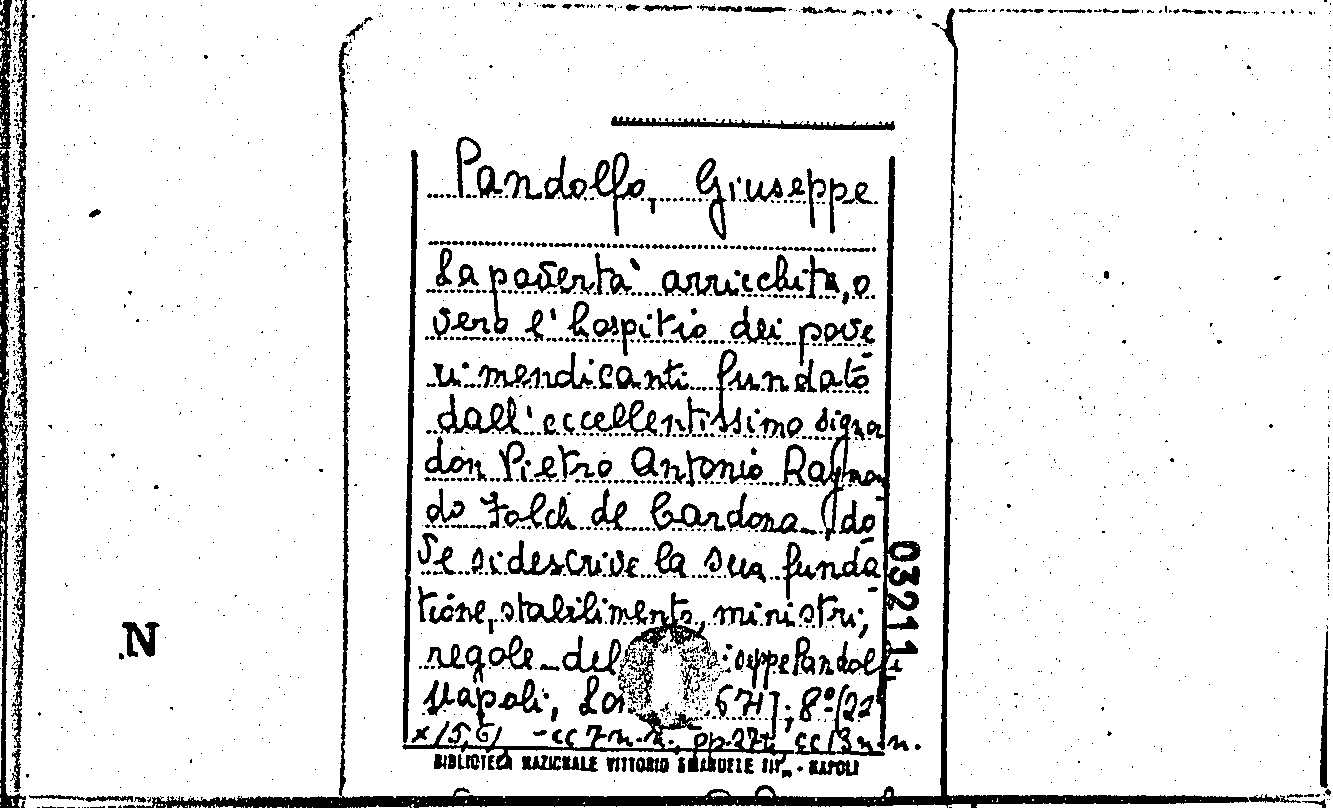 Pandolfo, Giuseppe
La povertà arricchita, o
vero l'hospitio dei pove
ri mendicanti fundato
dall'eccellentissimo signor
don Pietro Antonio Raymon
do Folch de Cardona do
ve si descrive la sua funda
tione, stabilimento, ministri,
regole del Pandolfi
Napoli, 671]; 8º (22
x 15,6) - cc 7 n.n., pp. cc 13 n.n.
BIBLIOTECA NAZIONALE VITTORIO EMANUELE III - NAPOLI
03211
N